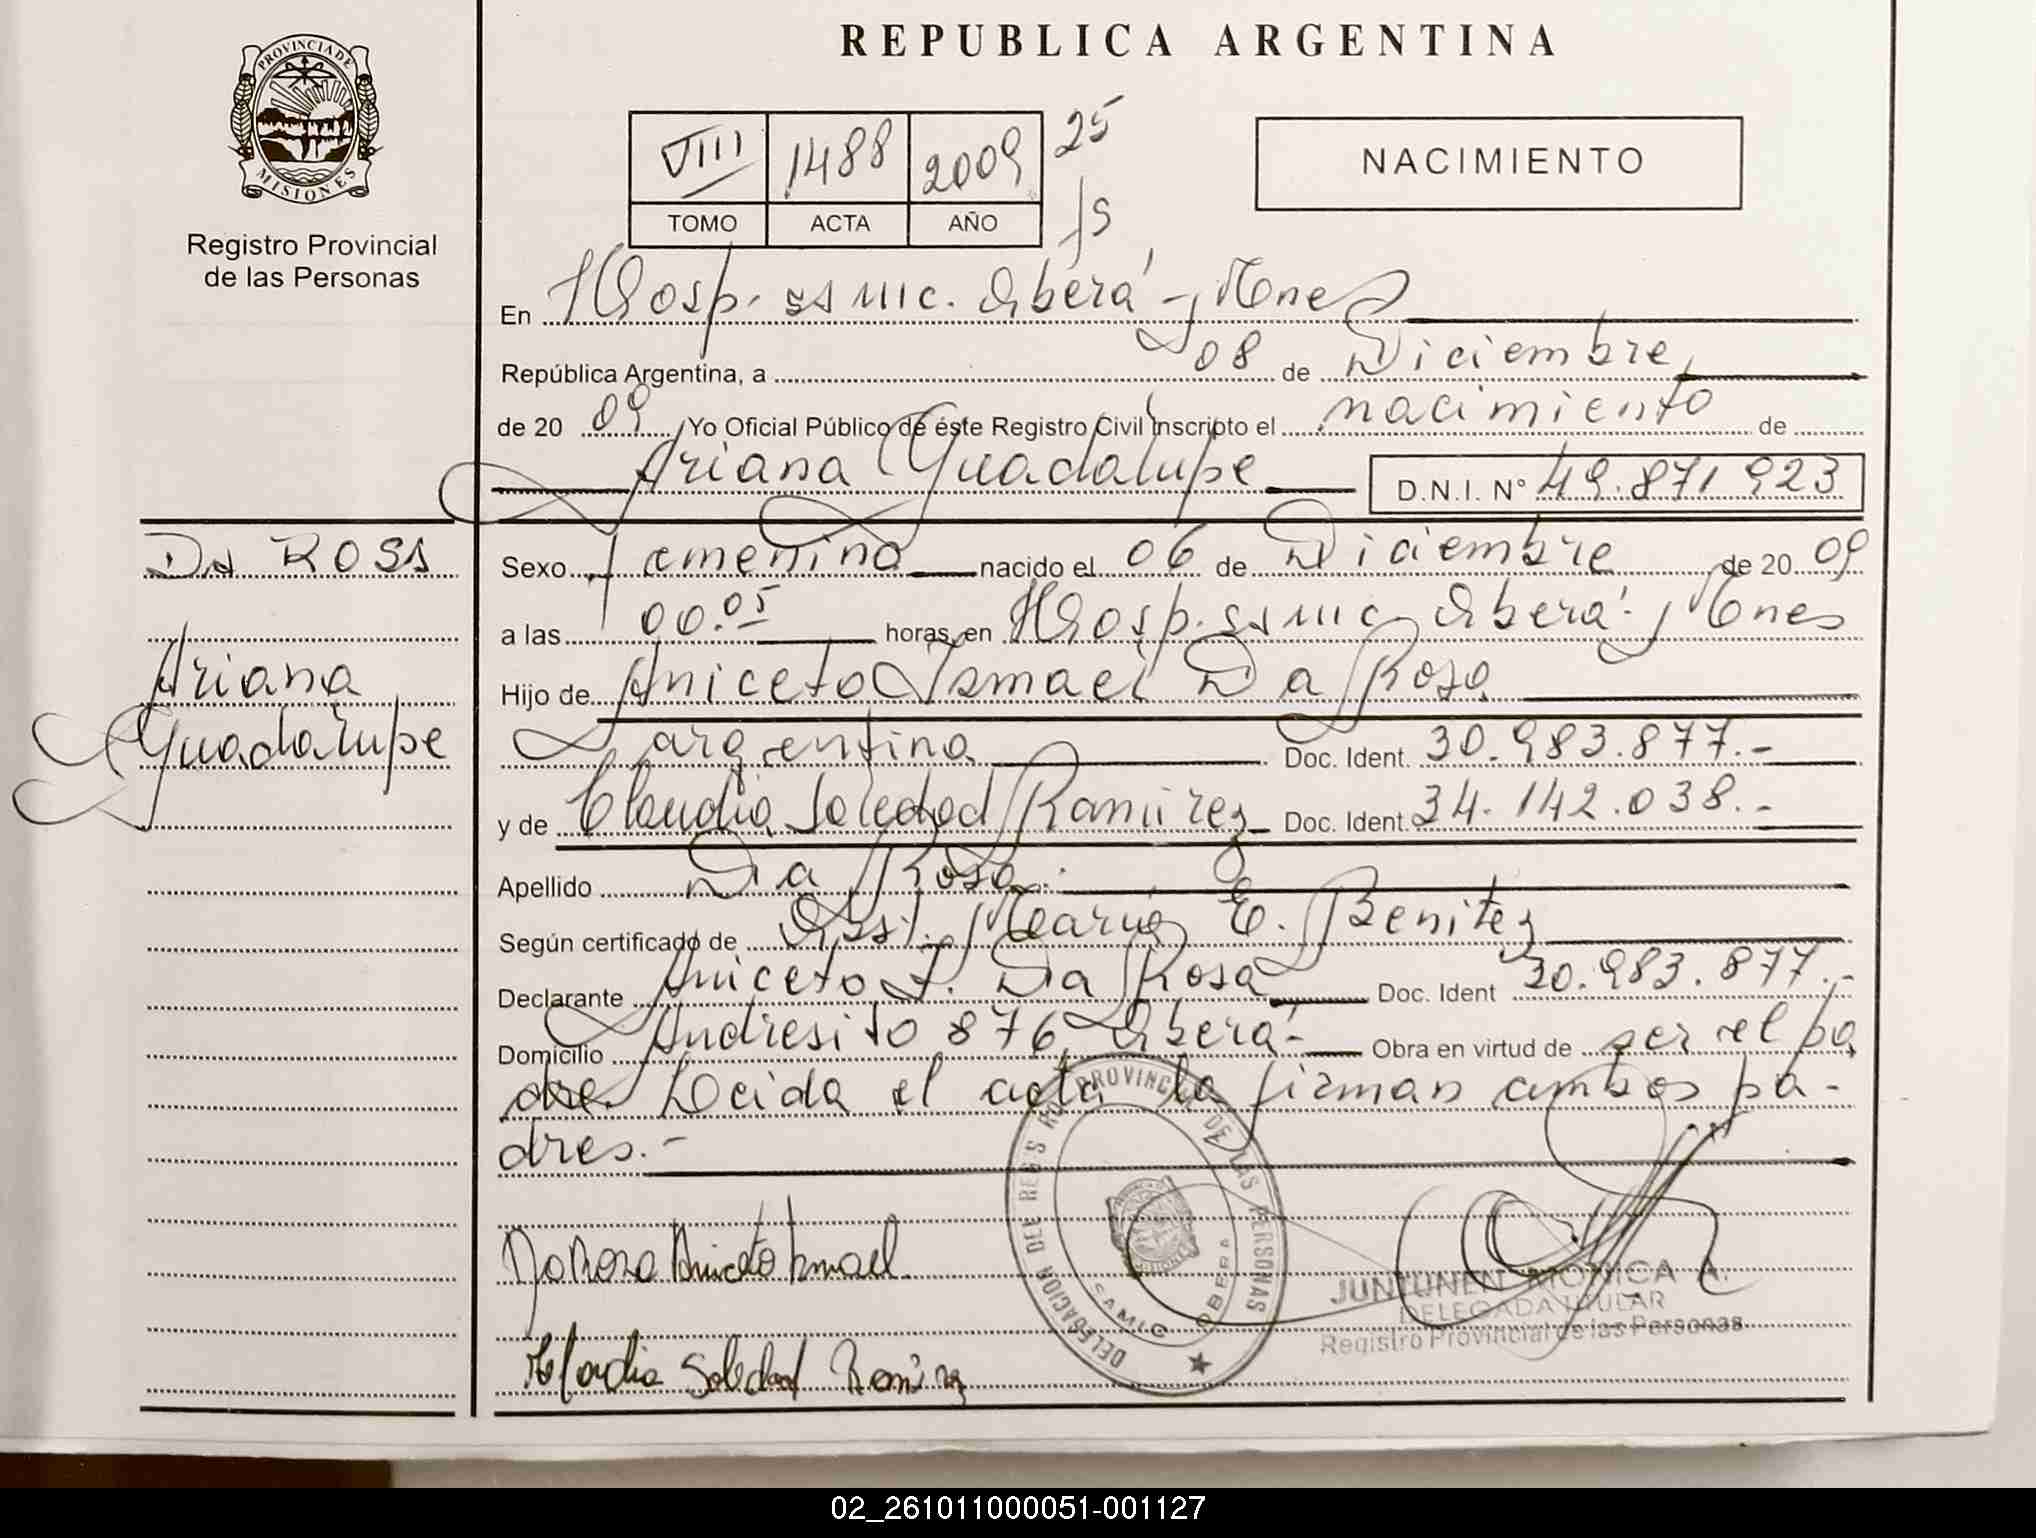 REPUBLICA ARGENTINA
PROVINCIA DE
MISIONES
Registro Provincial
de las Personas
VIII 1488 2009 25
TOMO ACTA AÑO
NACIMIENTO
En Hosp. SAMIC. Oberá - Mnes
República Argentina, a 08 de Diciembre
de 20 09 Yo Oficial Público de éste Registro Civil Inscripto el nacimiento de
Ariana Guadalupe D.N.I. Nº 49.871923
DA ROSA
Ariana
Guadalupe
Sexo femenino nacido el 06 de Diciembre de 20 09
a las 00.05 horas, en Hosp. SAMIC Oberá - Mnes
Hijo de Aniceto Ismael Da Rosa
argentino Doc. Ident. 30.983.877.-
y de Claudia Soledad Ramirez Doc. Ident. 34.142.038.-
Apellido Da Rosa.
Según certificado de Obst. Maria E. Benitez
Declarante Aniceto I. Da Rosa Doc. Ident 30.983.877.-
Domicilio Andresito 876 Oberá - Obra en virtud de ser el pa
dre. Leida el acta la firman ambos pa-
dres.-
Da Rosa Aniceto Ismael
Claudia Soledad Ramirez
DELEGACION DEL REGIS RO PROVINCIAL DE LAS PERSONAS
SAMIC OBERA
JUNTUNEN MONICA A.
DELEGADA TITULAR
Registro Provincial de las Personas
02_261011000051-001127